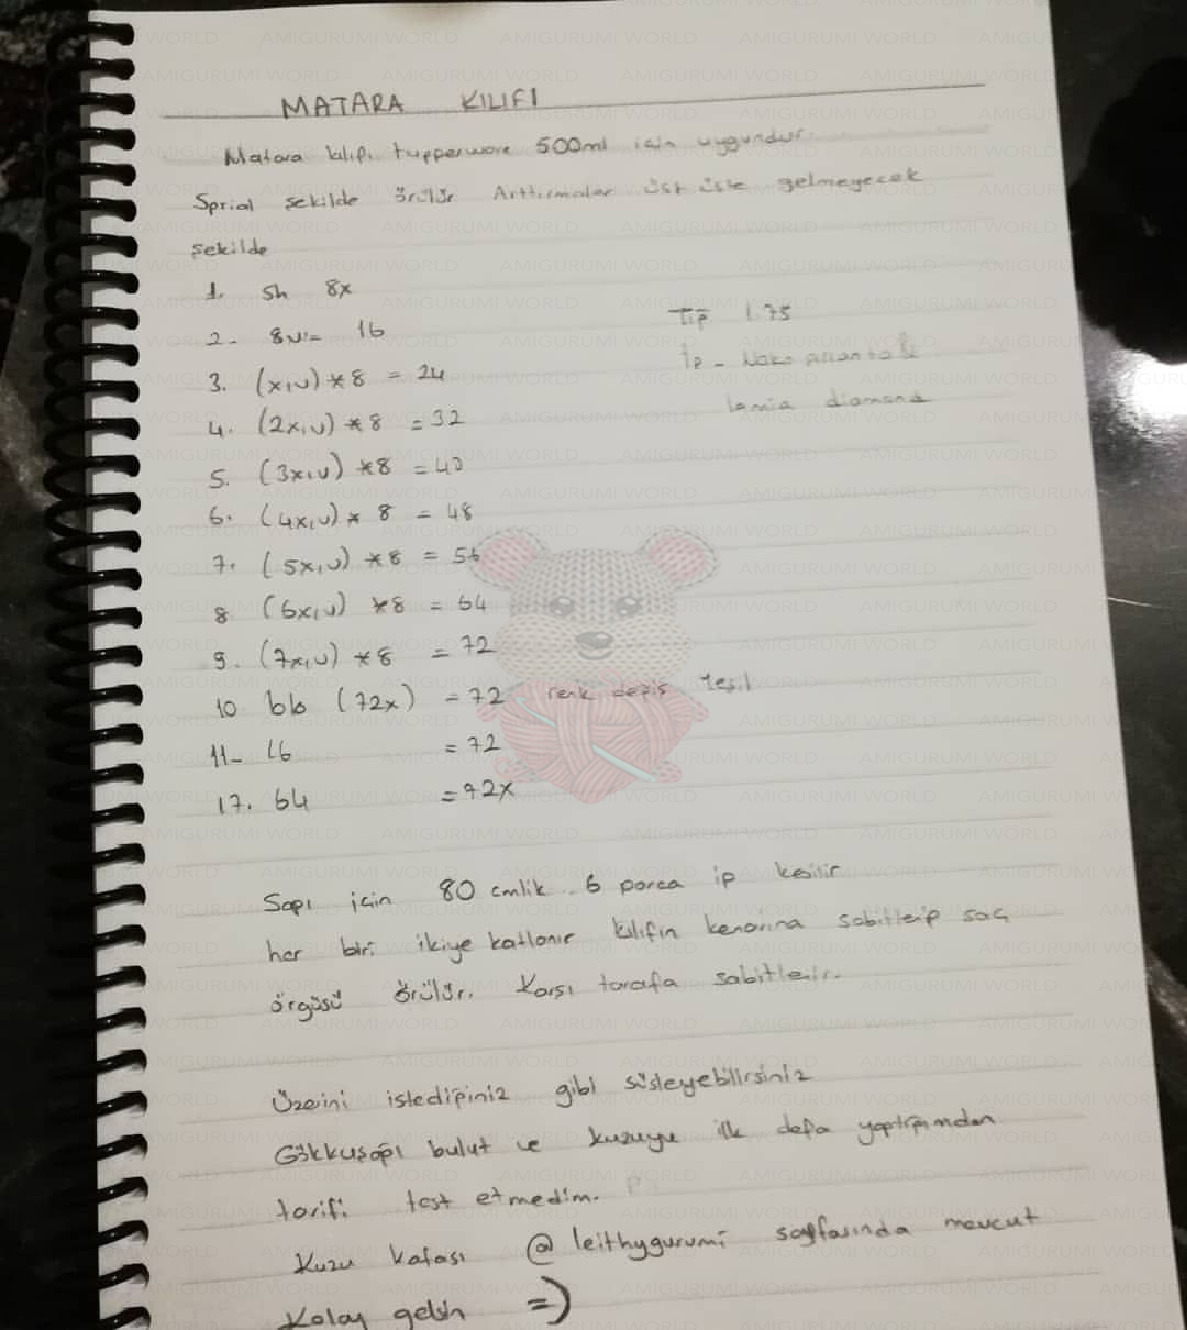 MATARA KILIFI
Matara kılıfı tupperware 500ml için uygundur.
Sprial şekilde örülür Arttırmalar üst üste gelmeyecek
şekilde
1. Sh 8x
Tıp 1.75
2- 8v = 16
3. (x,v)*8 = 24
4. (2x,v)*8 = 32
lamia diamond
5. (3x,v)*8 = 40
6. (4x,v)*8 = 48
7. (5x,v)*8 = 56
8. (6x,v)*8 = 64
9. (7x,v)*8 = 72
10 bb (72x) = 72 renk değiş Yeşil
11- = 72
17. = 72x
Sapı için 80 cmlik 6 parca ip kesilir
her biri ikiye katlanır kılıfın kenarına sabitleip saç
örgüsü örülür. Karsı tarafa sabitleir.
Üzeini istediğiniz gibi süsleyebilirsiniz
Gökkuşağı bulut ve kuzuyu ilk defa yaptığımdan
tarifi test etmedim.
Kuzu kafası @leithygurumi sayfasında mevcut
Kolay gelsin =)
AMIGURUMI WORLD